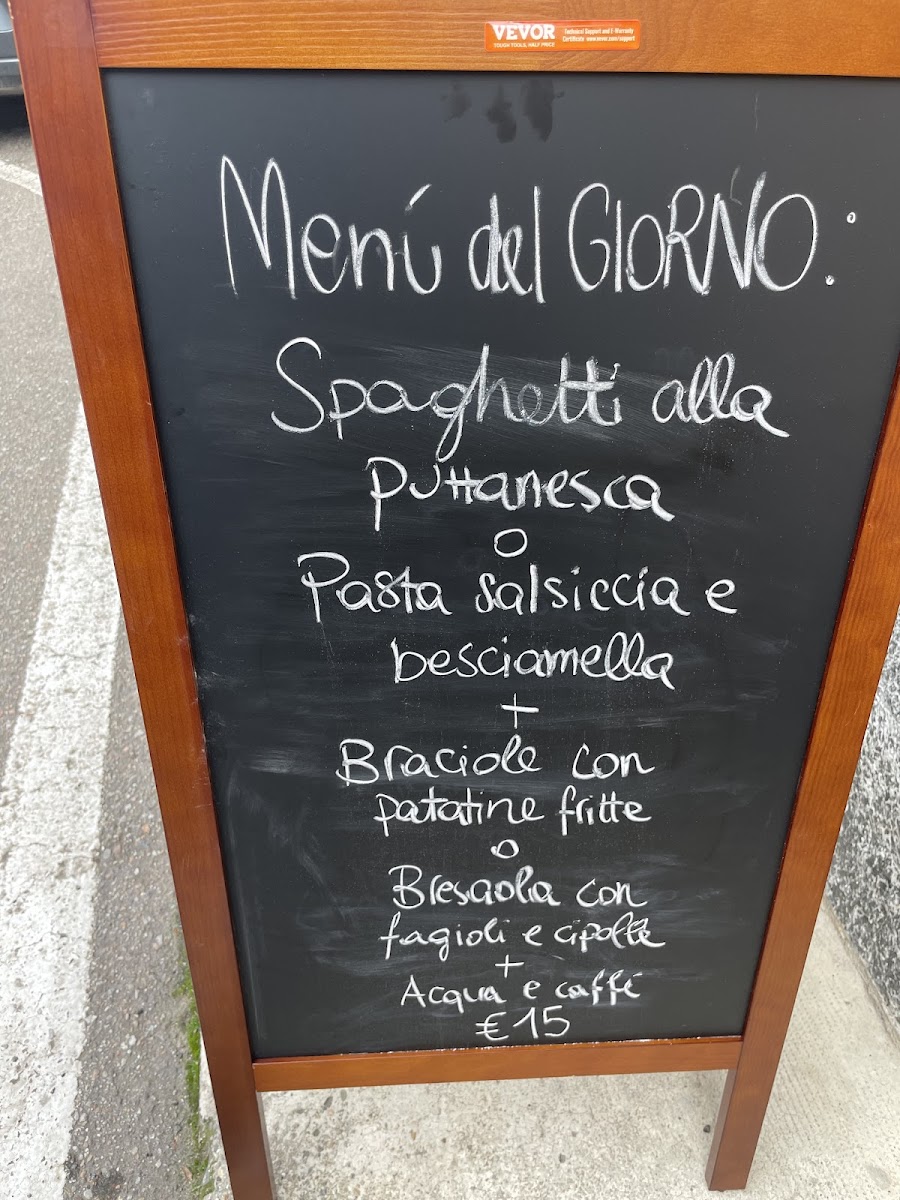 VEVOR
TOUGH TOOLS, HALF PRICE
Technical Support and E-Warranty
Certificate www.vevor.com/support
Menú del GIORNO:
Spaghetti alla
puttanesca
o
Pasta salsiccia e
besciamella
+
Braciole con
patatine fritte
o
Bresaola con
fagioli e cipolle
+
Acqua e caffé
€15